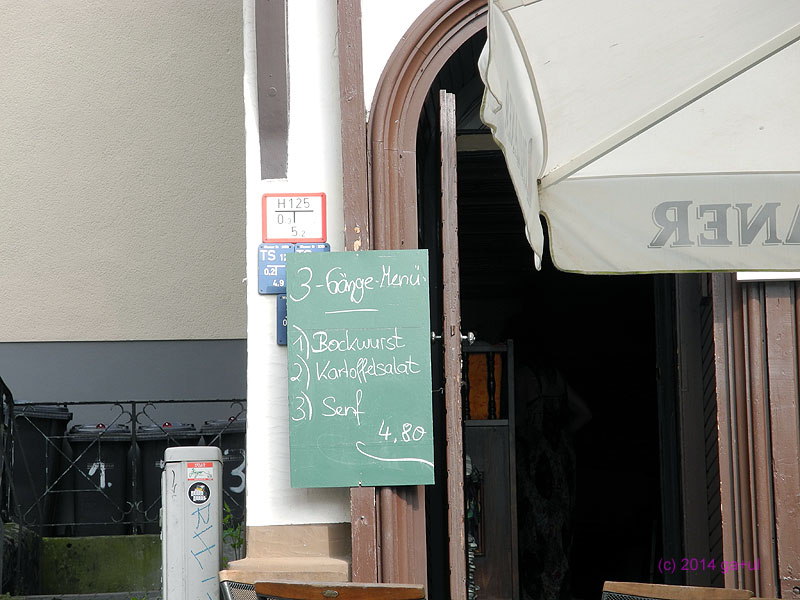 H 125
5 2
TS
0.2
4.9
3-Gänge-Menü
1) Bockwurst
2) Kartoffelsalat
3) Senf
4.80
1.
3
ANER
(c) 2014